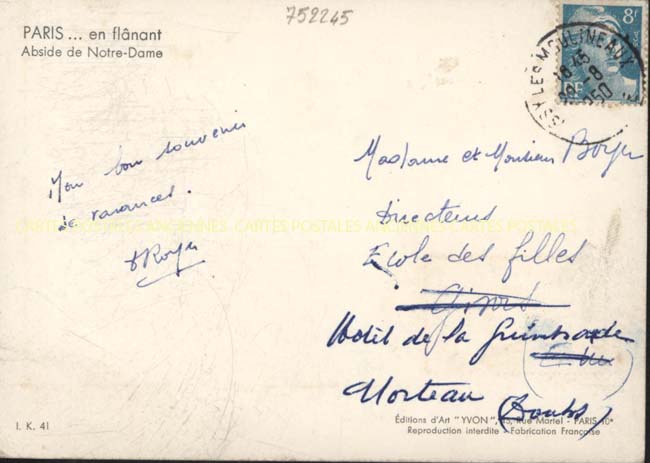 752245
PARIS ... en flânant
Abside de Notre-Dame
8F
ISSY LES MOULINEAUX
18 45
-8
1950
RF
Mon bon souvenir
de vacances.
Madame et Monsieur
Directeurs
Ecole des filles
Hotel de la
Morteau (Doubs)
CARTES POSTALES ANCIENNES CARTES POSTALES ANCIENNES CARTES POSTALES
I. K. 41
Éditions d'Art "YVON", 15, Rue Martel - PARIS-10e
Reproduction interdite - Fabrication Française